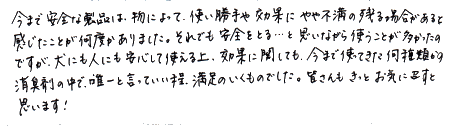 今まで安全な製品は、物によって、使い勝手や効果にやや不満の残る場合があると
感じたことが何度かありました。それでも安全をとる…と思いながら使うことが多かったの
ですが、犬にも人にも安心して使える上、効果に関しても、今まで使ってきた何種類かの
消臭剤の中で、唯一と言っていい程、満足のいくものでした。皆さんもきっとお気に召すと
思います!